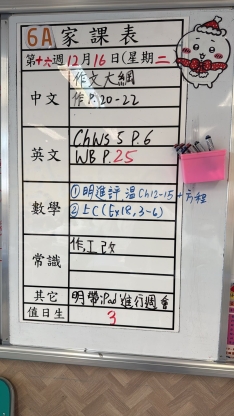 6A 家課表
第十六週12月16日(星期二)
中文
作文大綱
作P.20-22
英文
ChWs 5 P.6
WB P.25
數學
①明進評,溫Ch12-15+方程
②上C(Ex18,3-6)
常識
作,工,改
其它
明帶iPad進行週會
值日生
3